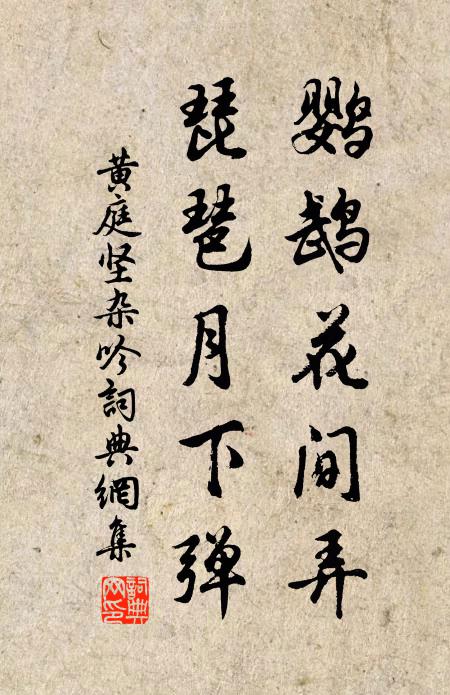 鹦鹉花间弄
琵琶月下弹
黄庭坚杂吟詞典網集
詞典网印